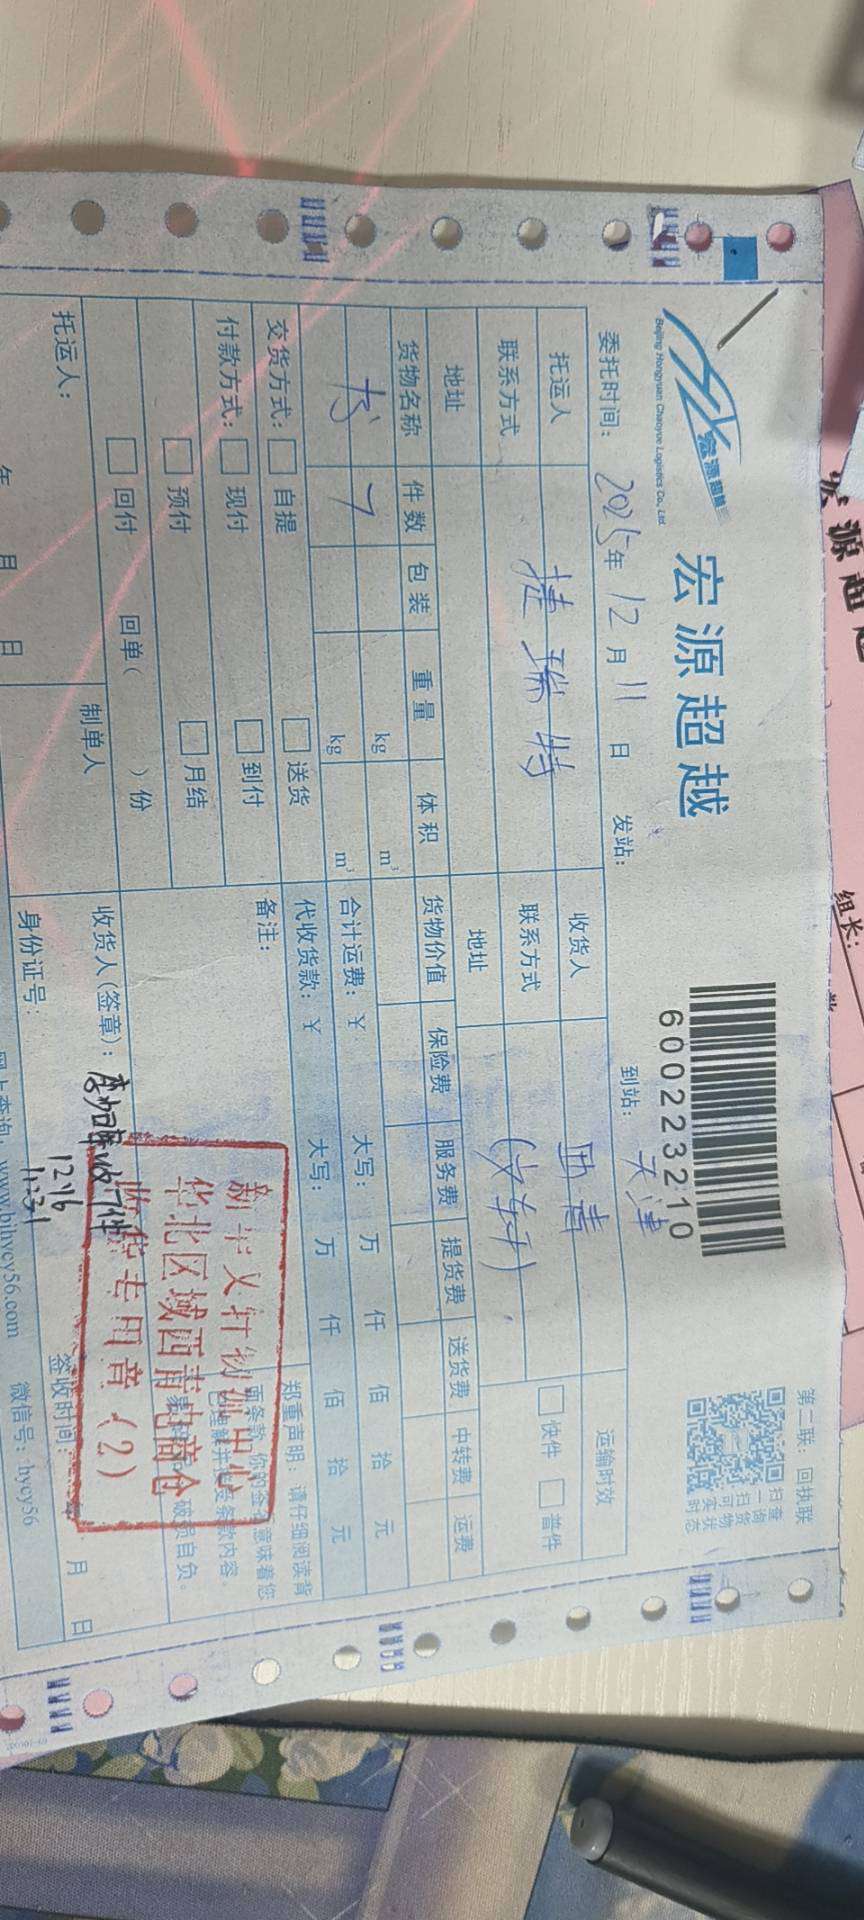 宏源超越
Beijing Hongyuan Chaoyue Logistics Co., Ltd
宏源超越
600223210
第二联：回执联
扫一扫
查询货物
可实时状态
委托时间：2025年12月11日 发站： 到站：天津
托运人 捷瑞特 收货人 西青 运输时效
联系方式 联系方式 (文轩) 快件 普件
地址 地址
货物名称 件数 包装 重量 体积 货物价值 保险费 服务费 提货费 送货费 中转费 运费
书 7 kg m³
kg m³ 合计运费：￥ 大写： 万 仟 佰 拾 元
交货方式： 自提 送货 代收货款：￥ 大写： 万 仟 佰 拾 元
付款方式： 现付 到付 备注：
预付 月结
回付 回单( )份
郑重声明：请仔细阅读背
面条款，
破损自负。
托运人： 制单人 收货人(签章)：
收7件
12.16
11:31
年 月 日 身份证号： 签收时间： 月 日
华北区域西青电商仓
收货专用章（2）
www.bjhycy56.com 微信号：hycy56
宏源超越
组长：